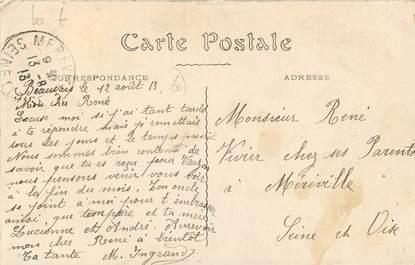 Carte Postale
CORRESPONDANCE
ADRESSE
Beauvais le 12 août 13
Mon cher René
Excuse moi si j'ai tant tardé
à te répondre mais je remettais
tous les jours et le temps passait
Nous sommes bien contents de
savoir que tu es reçu pour
nous pensons venir vous voir
à la fin du mois. Ton oncle
se joint à moi pour t'embrasser
ainsi que ton père et ta mère
Lucienne et André. Au revoir
mon cher René à bientôt
Ta tante M. Ingrand
Monsieur René
Vivier chez ses Parents
à Méréville
Seine et Oise